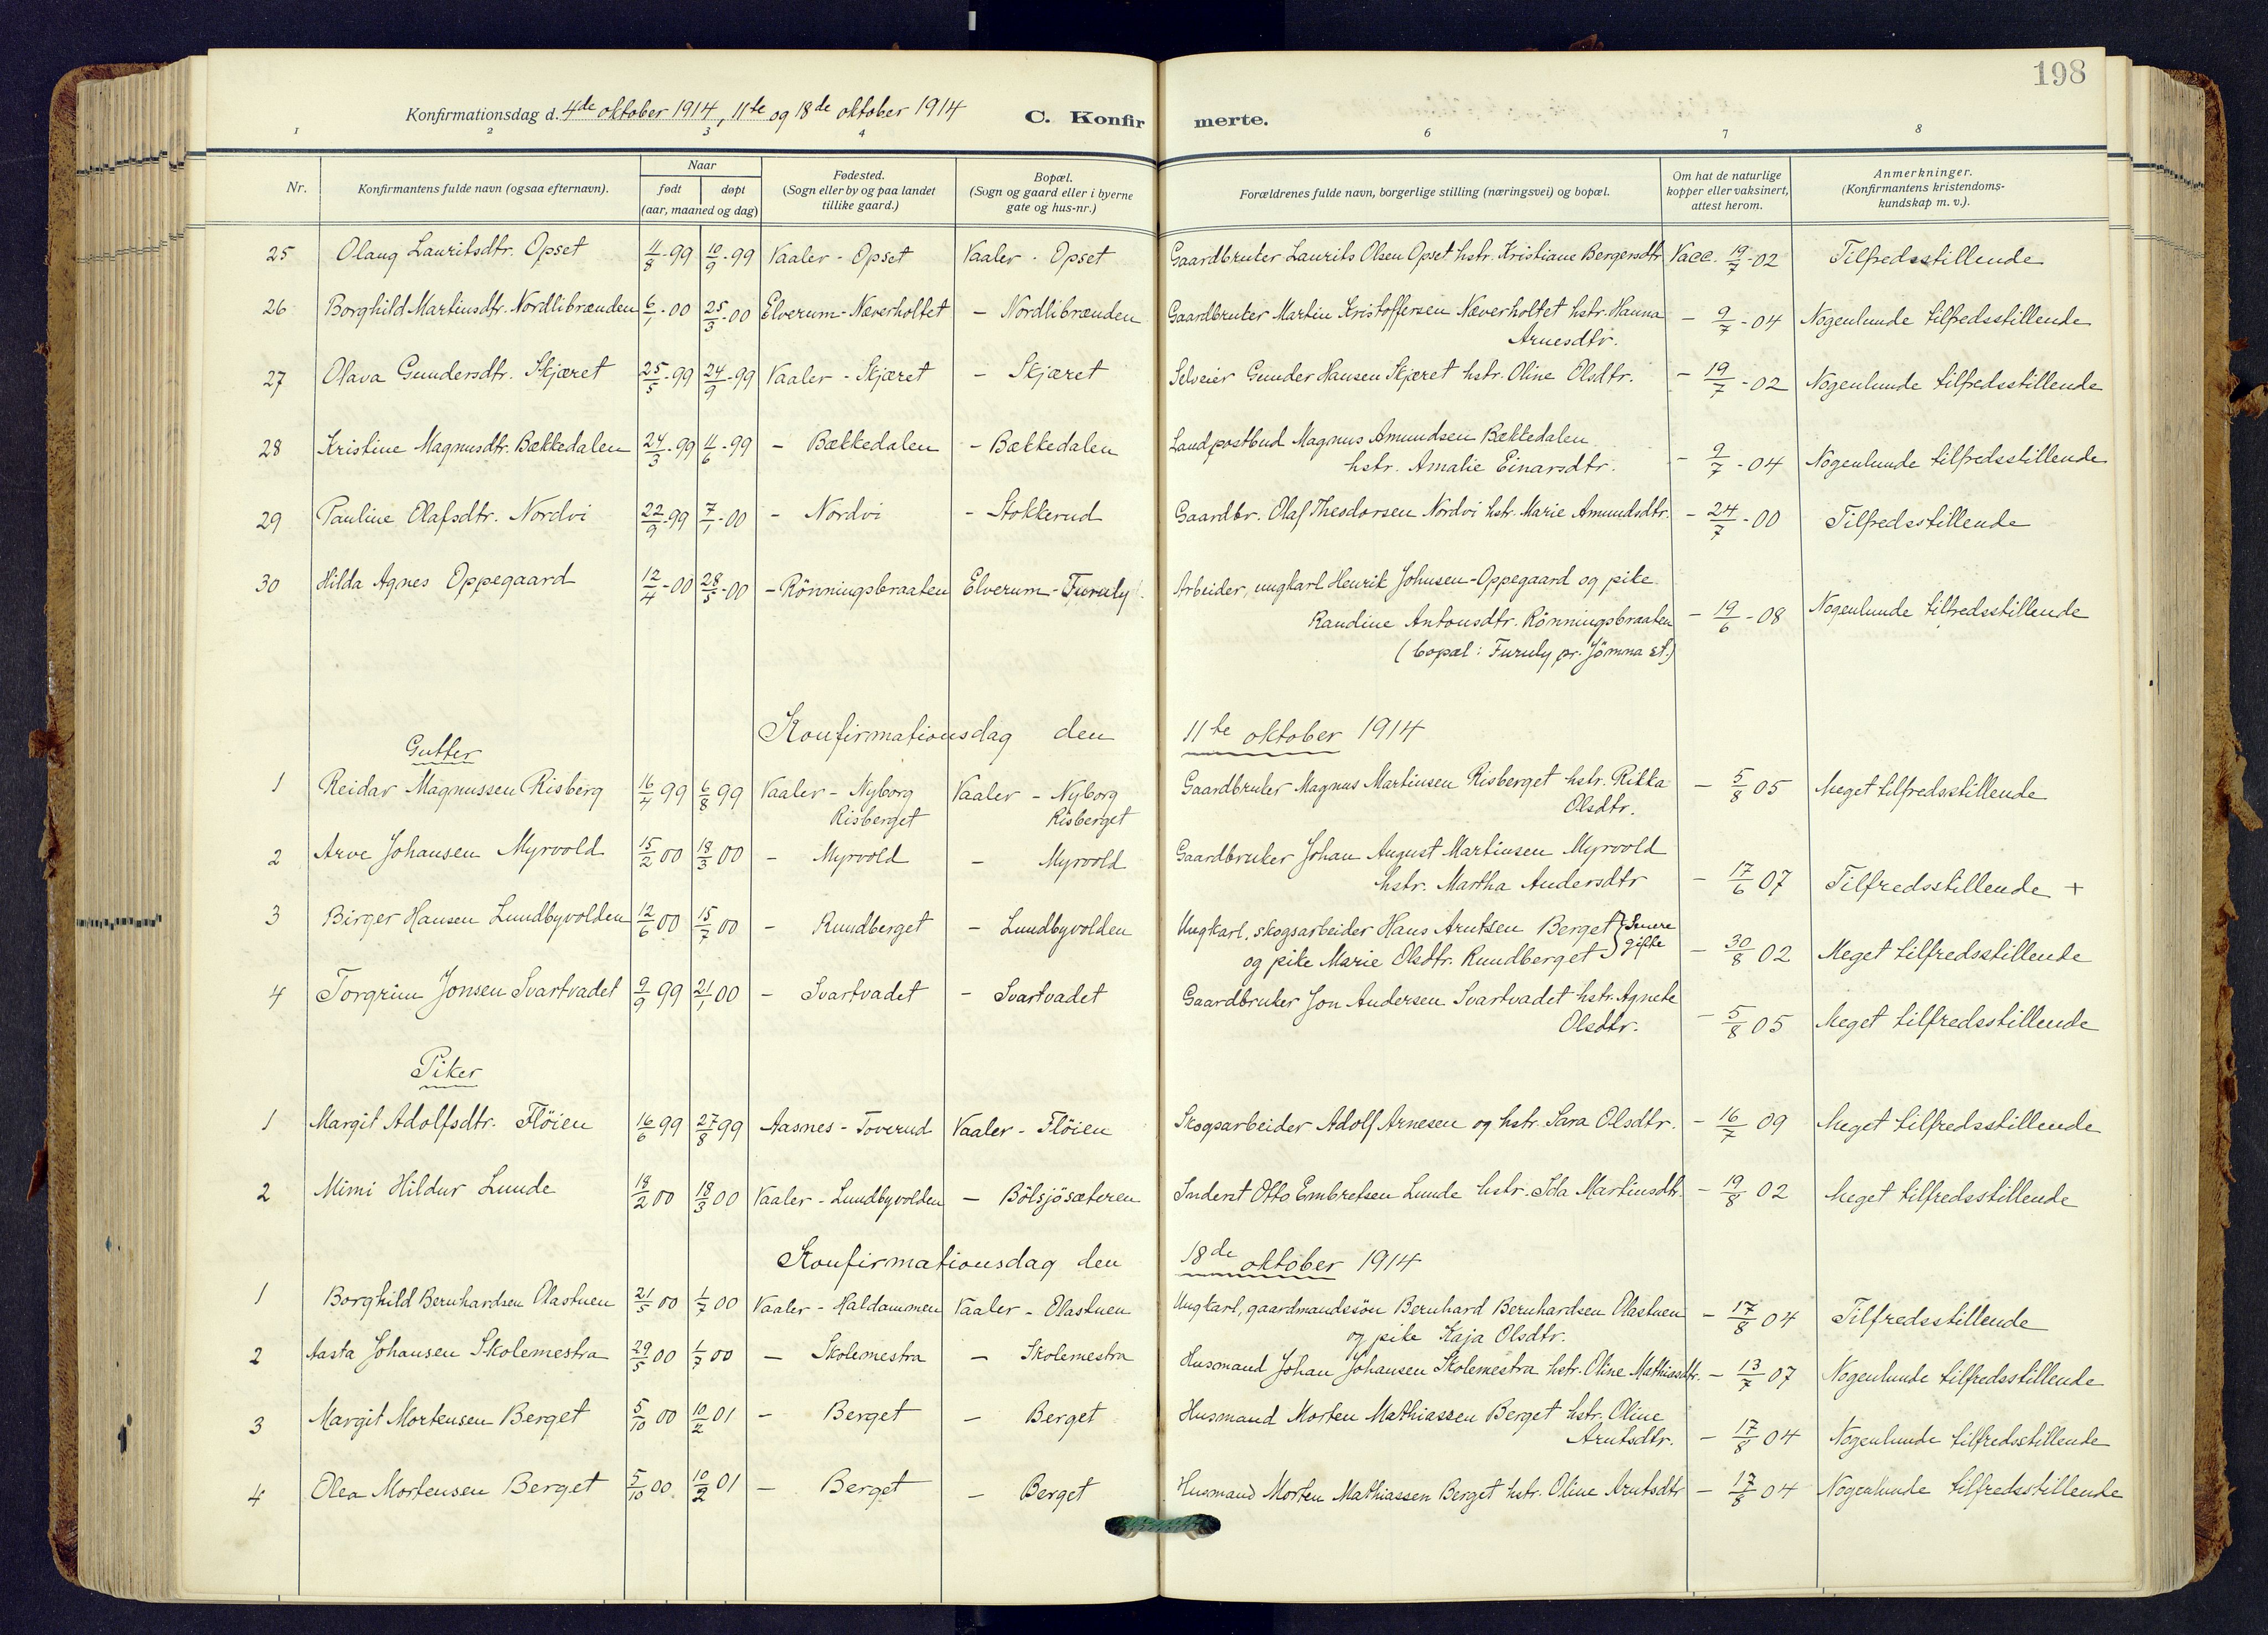 198
Konfirmationsdag d. 4de oktober 1914, 11te og 18de oktober 1914 C. Konfirmerte.
1 2 3 4 6 7 8
Nr. Konfirmantens fulde navn (ogsaa efternavn). Naar født døpt (aar, maaned og dag) Fødested. (Sogn eller by og paa landet tillike gaard.) Bopæl. (Sogn og gaard eller i byerne gate og hus-nr.) Forældrenes fulde navn, borgerlige stilling (næringsvei) og bopæl. Om hat de naturlige kopper eller vaksinert, attest herom. Anmerkninger. (Konfirmantens kristendoms-kundskap m. v.).
25 Olaug Lauritsdtr. Opset 4/8-99 10/9-99 Vaaler - Opset Vaaler - Opset Gaardbruker Laurits Olsen Opset hstr. Kristiane Bergersdtr Vacc. 19/7-02 Tilfredsstillende
26 Borghild Martinsdtr. Nordlibrænden 6/1-00 25/3-00 Elverum - Næverholtet - Nordlibrænden Gaardbruker Martin Kristoffersen Næverholtet hstr. Hanna - 9/7-04 Nogenlunde tilfredsstillende
Arnesdtr.
27 Olava Gundersdtr. Skjæret 25/5-99 24/9-99 Vaaler - Skjæret - Skjæret Selveier Gunder Hansen Skjæret hstr. Oline Olsdtr. - 19/7-02 Nogenlunde tilfredsstillende
28 Kristine Magnusdtr. Bækkedalen 24/3-99 4/6-99 - Bækkedalen - Bækkedalen Landpostbud Magnus Amundsen Bækkedalen
hstr. Amalie Einarsdtr. - 9/7-04 Nogenlunde tilfredsstillende
29 Pauline Olafsdtr. Nordvi 22/9-99 7/1-00 - Nordvi - Stokkerud Gaardbr. Olaf Theodorsen Nordvi hstr. Marie Amundsdtr. - 24/7-00 Tilfredsstillende
30 Hilda Agnes Oppegaard 12/4-00 28/5-00 - Rönningsbraaten Elverum - Furuly Arbeider, ungkarl Henrik Johnsen-Oppegaard og pike
Randine Antonsdtr. Rönningsbraaten - 19/6-08 Nogenlunde tilfredsstillende
(bopæl: Furuly pr. Jömna st.)
Konfirmationsdag den 11te oktober 1914
Gutter
1 Reidar Magnussen Risberg 16/4 99 6/8 99 Vaaler - Nyborg Vaaler - Nyborg Gaardbruker Magnus Martinsen Risberget hstr. Rikka - 5/8 05 Meget tilfredsstillende
Risberget Risberget Olsdtr.
2 Arve Johansen Myrvold 15/2 00 18/3 00 - Myrvold - Myrvold Gaardbruker Johan August Martinsen Myrvold
hstr. Martha Andersdtr - 17/6 07 Tilfredsstillende +
3 Birger Hansen Lundbyvolden 12/6 00 15/7 00 - Rundberget - Lundbyvolden Ungkarl, skogsarbeider Hans Arntsen Berget } Senere
og pike Marie Olsdtr. Rundberget gifte - 30/8 02 Meget tilfredsstillende
4 Torgrim Jonsen Svartvadet 9/9 99 21/1 00 - Svartvadet - Svartvadet Gaardbruker Jon Andersen Svartvadet hstr. Agnete
Olsdtr. - 5/8 05 Meget tilfredsstillende
Piker
1 Margit Adolfsdtr. Flöien 16/6 99 27/8 99 Aasnes - Toverud Vaaler - Flöien Skogsarbeider Adolf Arnesen og hstr. Sara Olsdtr. - 16/7 09 Meget tilfredsstillende
2 Mimi Hildur Lunde 18/2 00 18/3 00 Vaaler - Lundbyvolden - Bölsjösæteren Inderst Otto Embretsen Lunde hstr. Ida Martinsdtr. - 19/8 02 Meget tilfredsstillende
Konfirmationsdag den 18de oktober 1914
1 Borghild Bernhardsen Olastuen 21/5 00 1/7 00 Vaaler - Haldammen Vaaler - Olastuen Ungkarl, gaardmandssön Bernhard Bernhardsen Olastuen - 17/8 04 Tilfredsstillende
og pike Kaja Olsdtr.
2 Aasta Johansen Skolemestra 29/5 00 1/7 00 - Skolemestra - Skolemestra Husmand Johan Johansen Skolemestra hstr. Oline Mathiasdtr. - 13/7 07 Nogenlunde tilfredsstillende
3 Margit Mortensen Berget 5/10 00 10/2 01 - Berget - Berget Husmand Morten Mathiassen Berget hstr. Oline
Arntsdtr. - 17/8 04 Nogenlunde tilfredsstillende
4 Olea Mortensen Berget 5/10 00 10/2 01 - Berget - Berget Husmand Morten Mathiassen Berget hstr. Oline Arntsdtr - 17/8 04 Nogenlunde tilfredsstillende